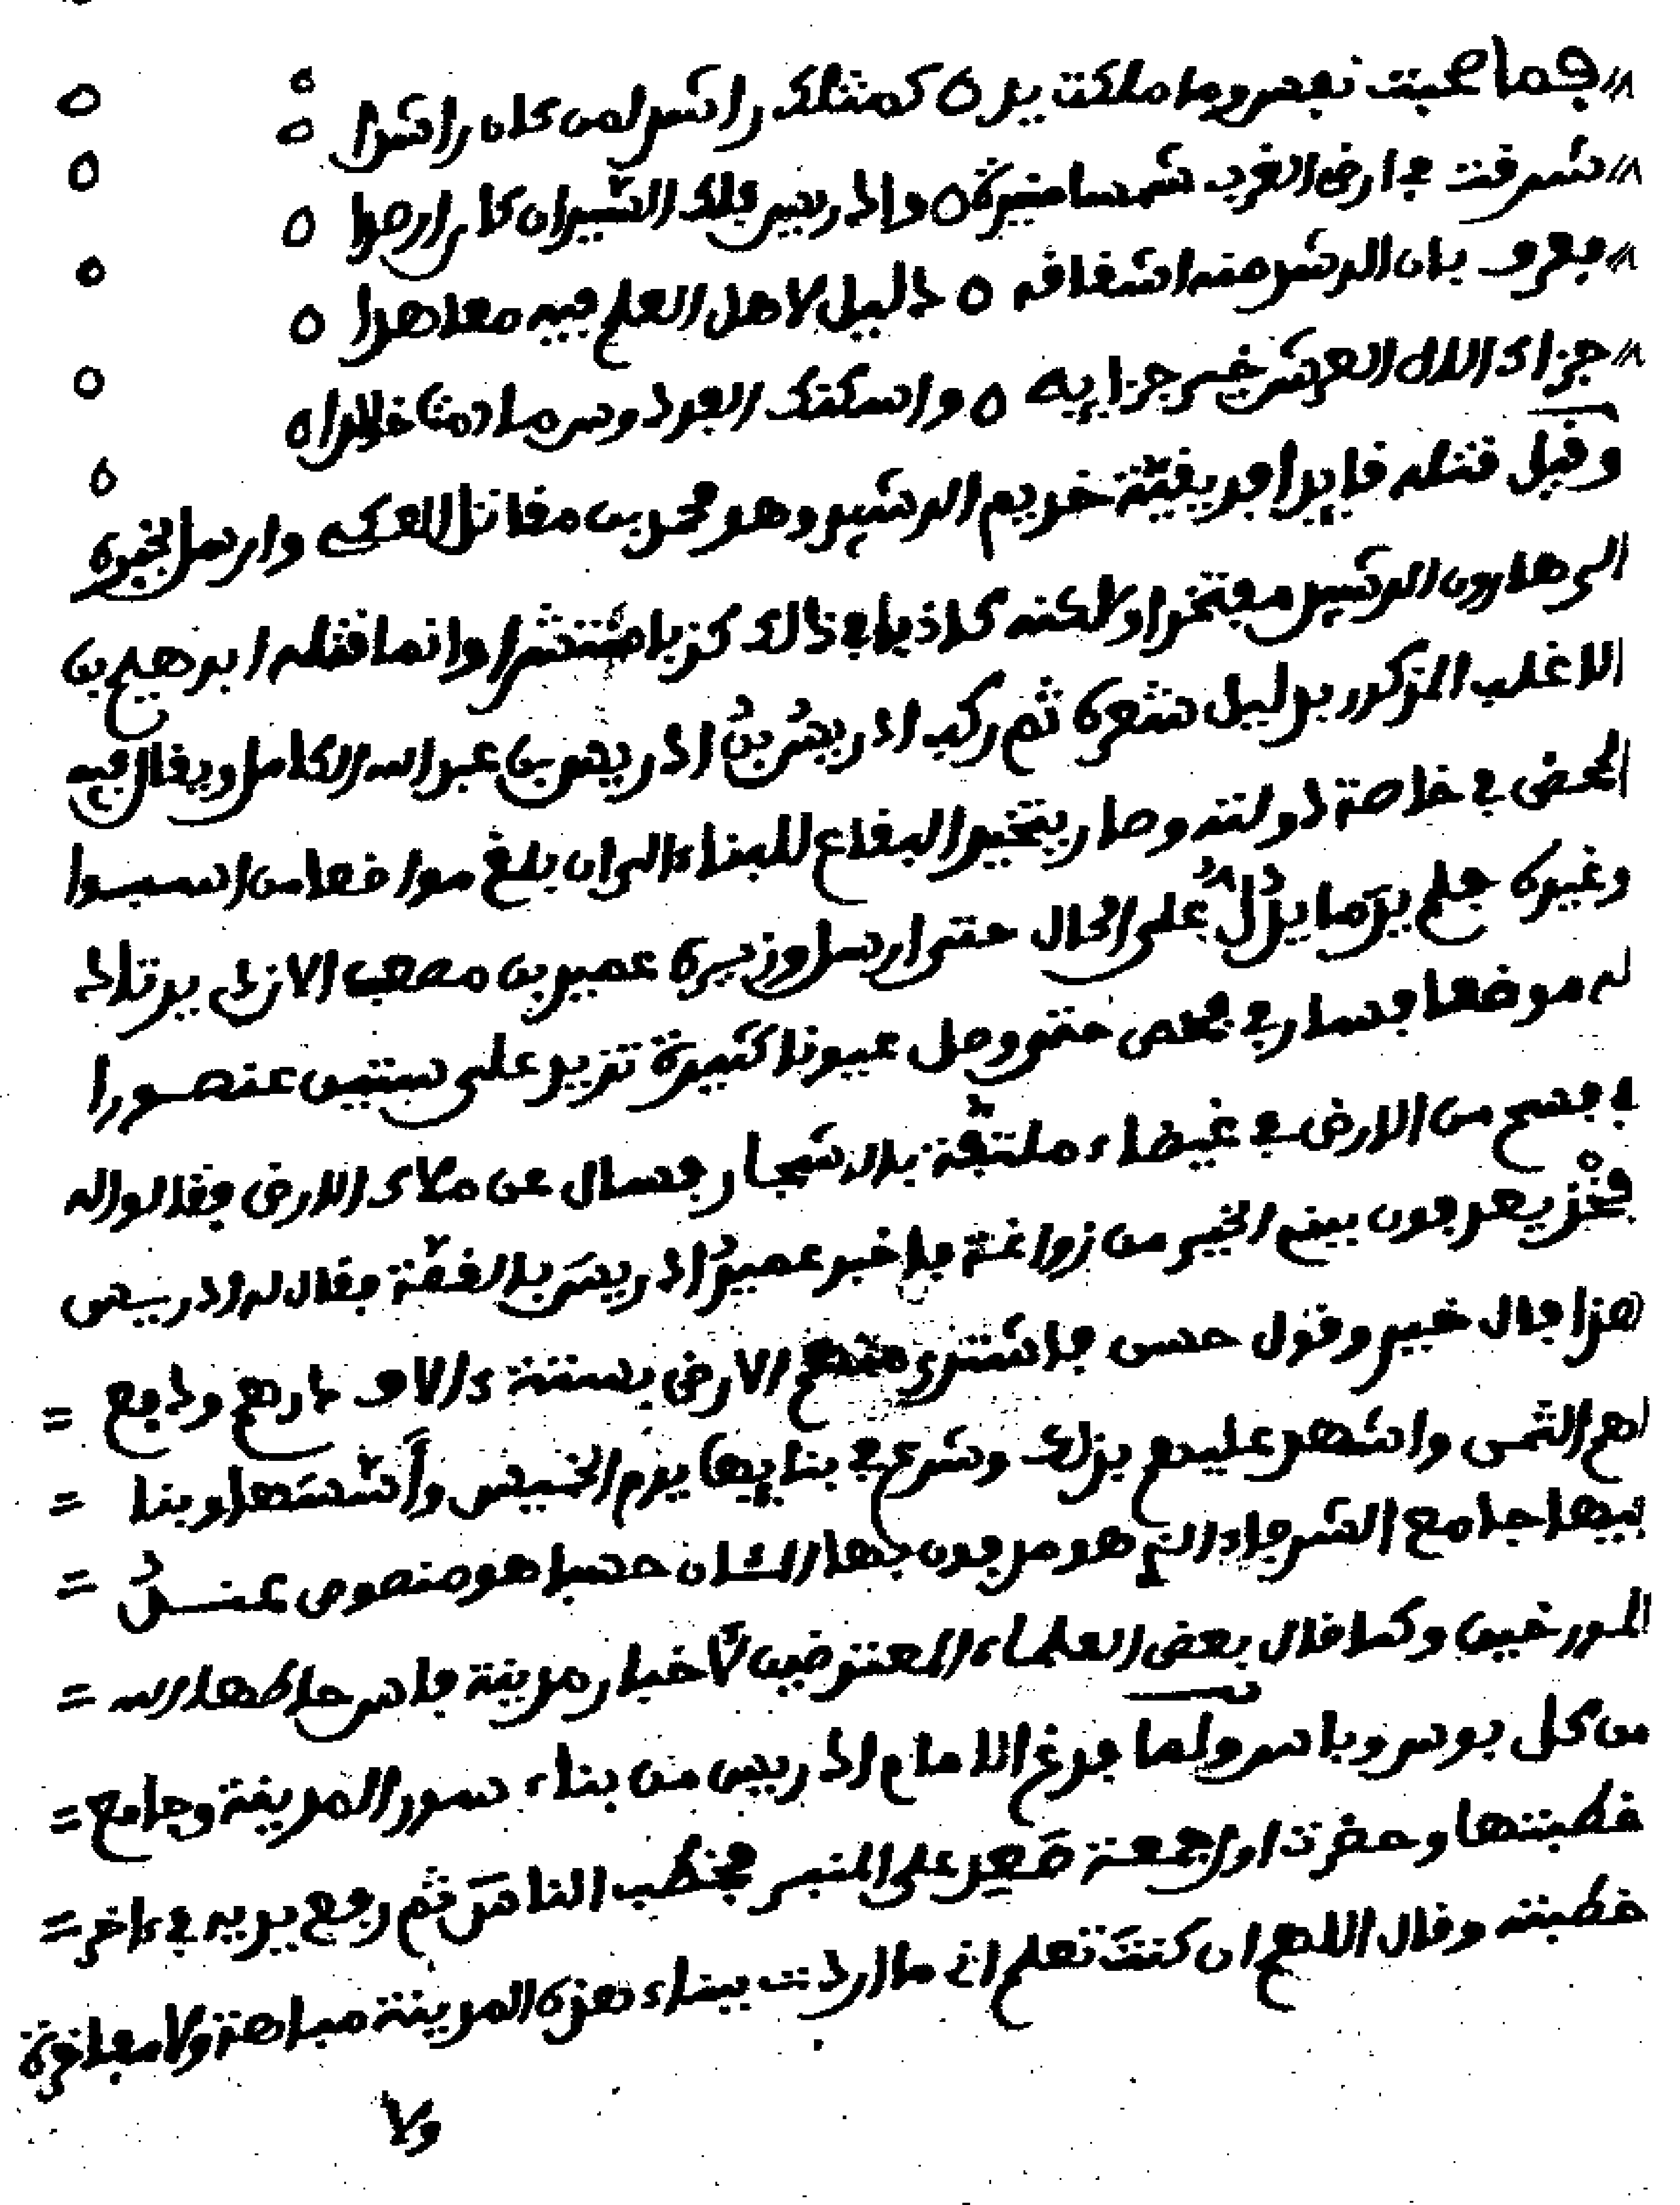 فما صحبت نفس وما ملكت يد ٥ كمثلك راشد لمن كان راشدا
شرفت في ارض الغرب شمسا منيرة ٥ وادريس فلك الشيران كا
بعرف بان الرشد منه اشفاقه ٥ دليل لاهل العلم فيه معاهدا
جزاك الاه العرش خير جزايه ٥ واسكنك الفردوس ما دمت خالدا ٥
وقيل قتله قايد افريقية خديم الرشيد وهو محمد بن مقاتل العكي وارسل بخبره
الى هارون الرشيد مفتخرا ولاكنه كاذبا في ذالك كذبا منتشرا وانما قتله ابرهيم بن
الاغلب المذكور بدليل شعره ثم ركب ادريس بن ادريس بن عبد الله الكامل ويقال فيه
المحض في خاصة دولته وصار يتخير البقاع للبناء الى ان بلغ مواضعا من اسبوا
وغيره فلم ير ما يدل على الحال حتى ارسل وزيره عمير بن مصعب الازدي يرتاد
له موضعا فسار في فحص حتى وصل عيونا كثيرة تزيد على ستين عنصورا
في فسح من الارض في غيضاء ملتفة بالاشجار فسال عن ملاك الارض فقالوا له
فخذ يعرفون ببني الخير من زواغة فاخبر عمير ادريس بالقصة فقال له ادريس
هذا فال خير وقول حسن فاشترى منهم الارض بستة ءالاف درهم ودفع =
لهم الثمن واشهد عليهم بذلك وشرع في بنايها يوم الخميس وأسسها وبنا =
فيها جامع الشرفا الذي هو مدفون بها الان حسبا هو منصوص عند =
المورخين وكما قال بعض العلماء المعتنين لأخبار مدينة فاس حاطها الله =
من كل بوس وباس ولما فرغ الامام ادريس من بناء سور المدينة وجامع =
خطبتها وحضرت اول جمعة صعد على المنبر فخطب الناس ثم رفع يديه في ءاخر =
خطبته وقال اللهم ان كنت تعلم اني ما اردت ببناء هذه المدينة مباهة ولا مفاخرة
ولا